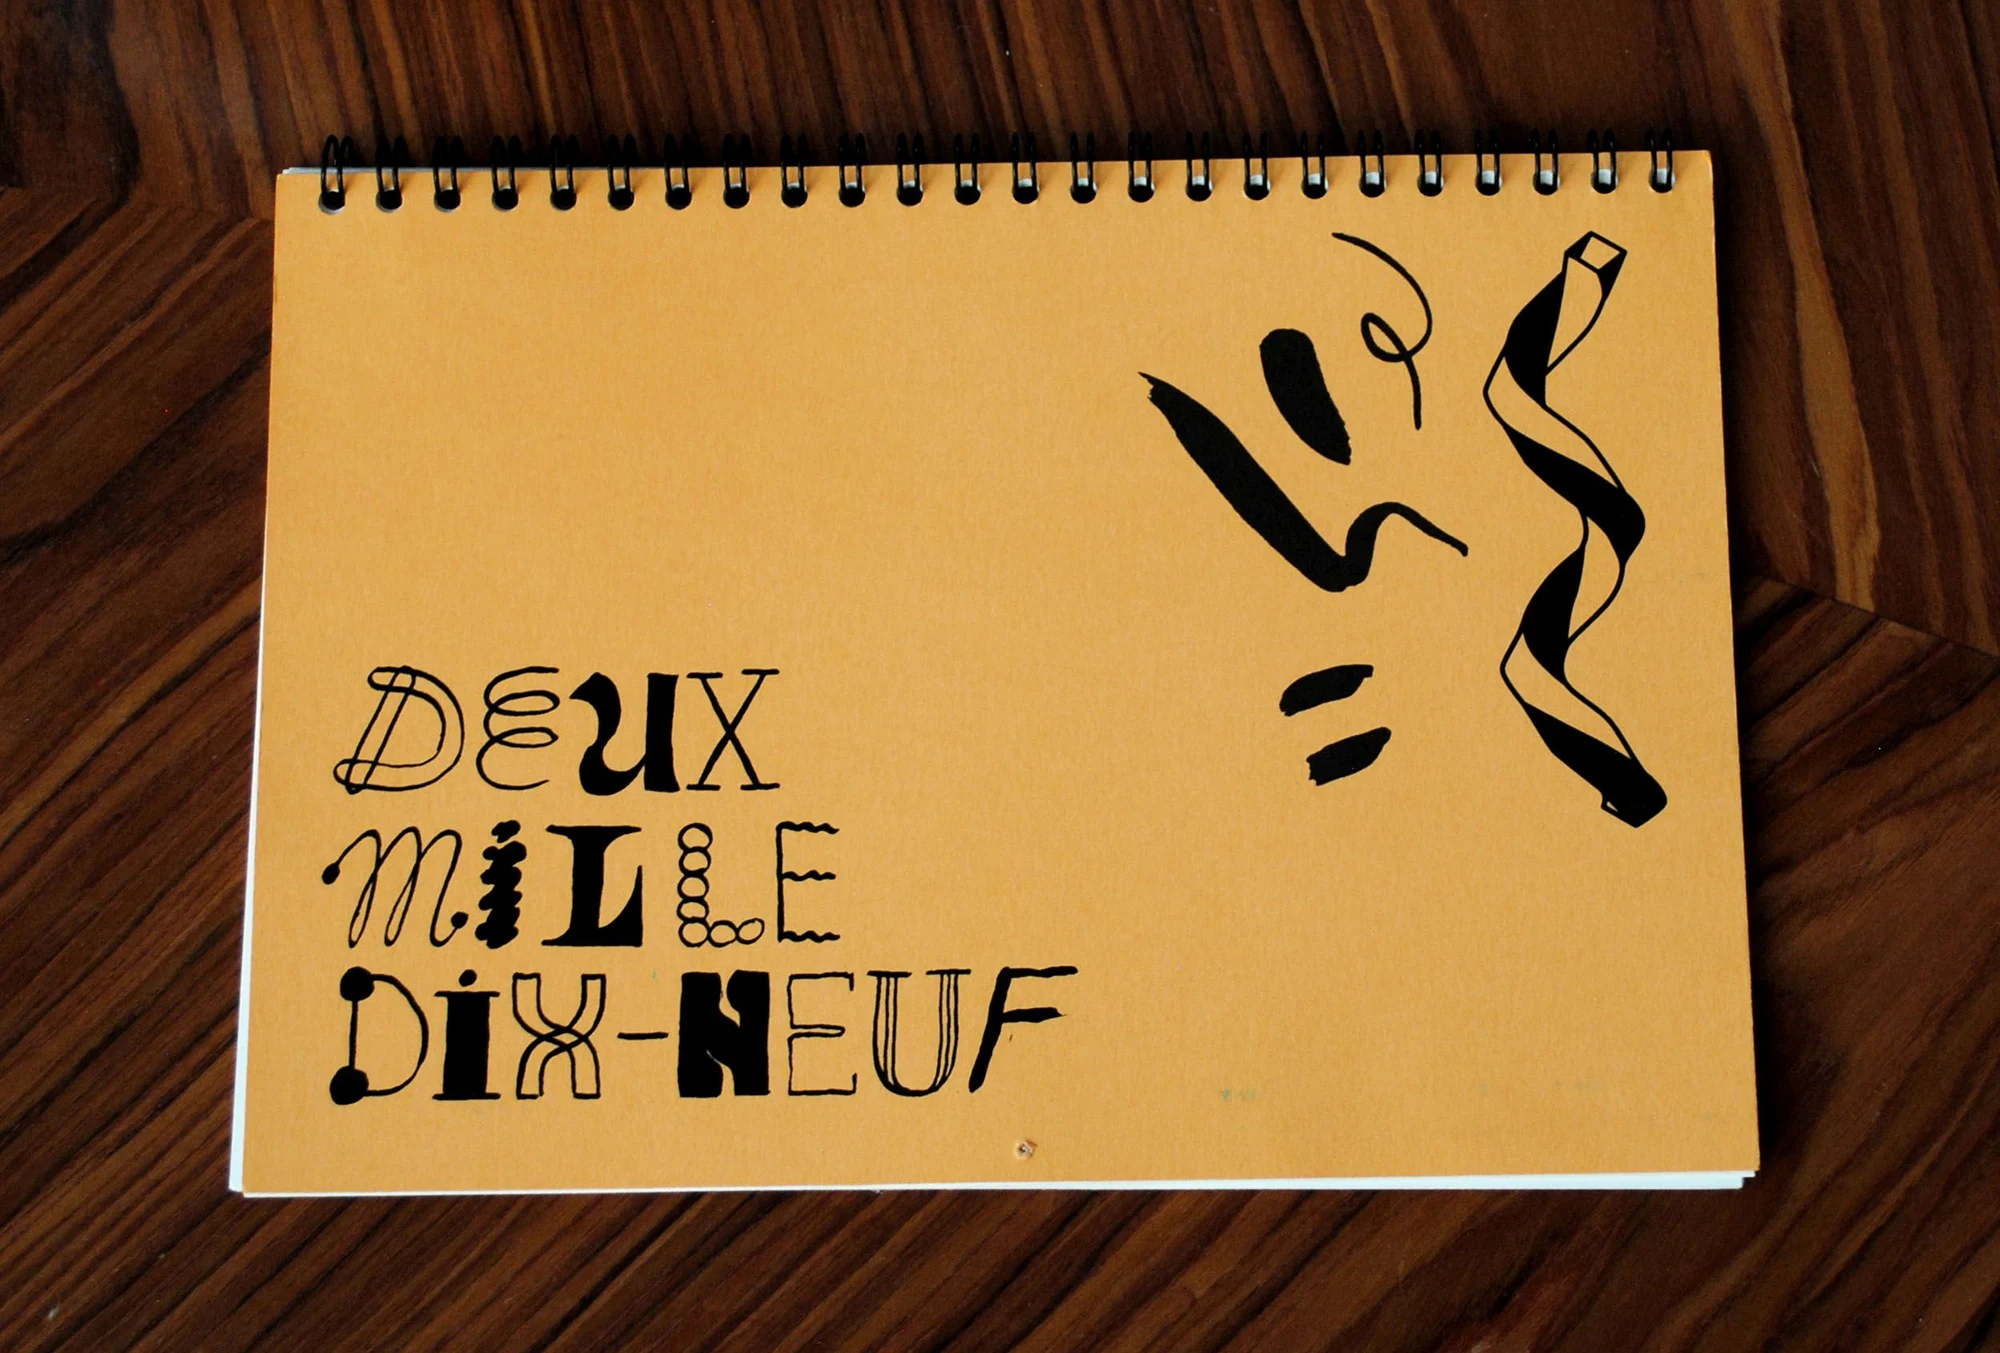 DEUX
MiLLE
DiX-NEUF